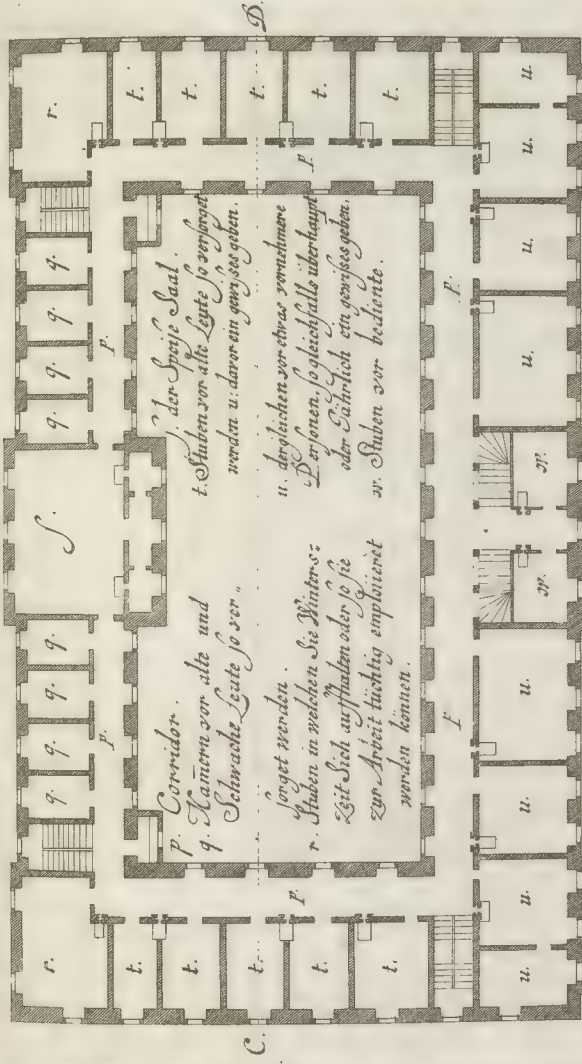 r. q. q. q. q. S. q. q. q. q. r.
p. p.
t. t.
t. t.
C. t. t. D.
t. p. p. t.
t. t.
p. Corridor.
q. Kamern vor alte und
Schwache Leute so ver„
sorget werden.
r. Stuben in welchen Sie Winters=
zeit Sich auffhalten oder so sie
zur Arbeit tüchtig emploiieret
werden können.
S. der Speise Saal.
t. Stuben vor alte Leute so versorget
werden u: davor ein gewisses geben.
u. dergleichen vor etwas vornehmere
Personen, so gleichfalls überhaupt
oder Jährlich ein gewisses geben.
w. Stuben vor bediente.
p. p.
u. u. u. u. w. w. u. u. u. u.